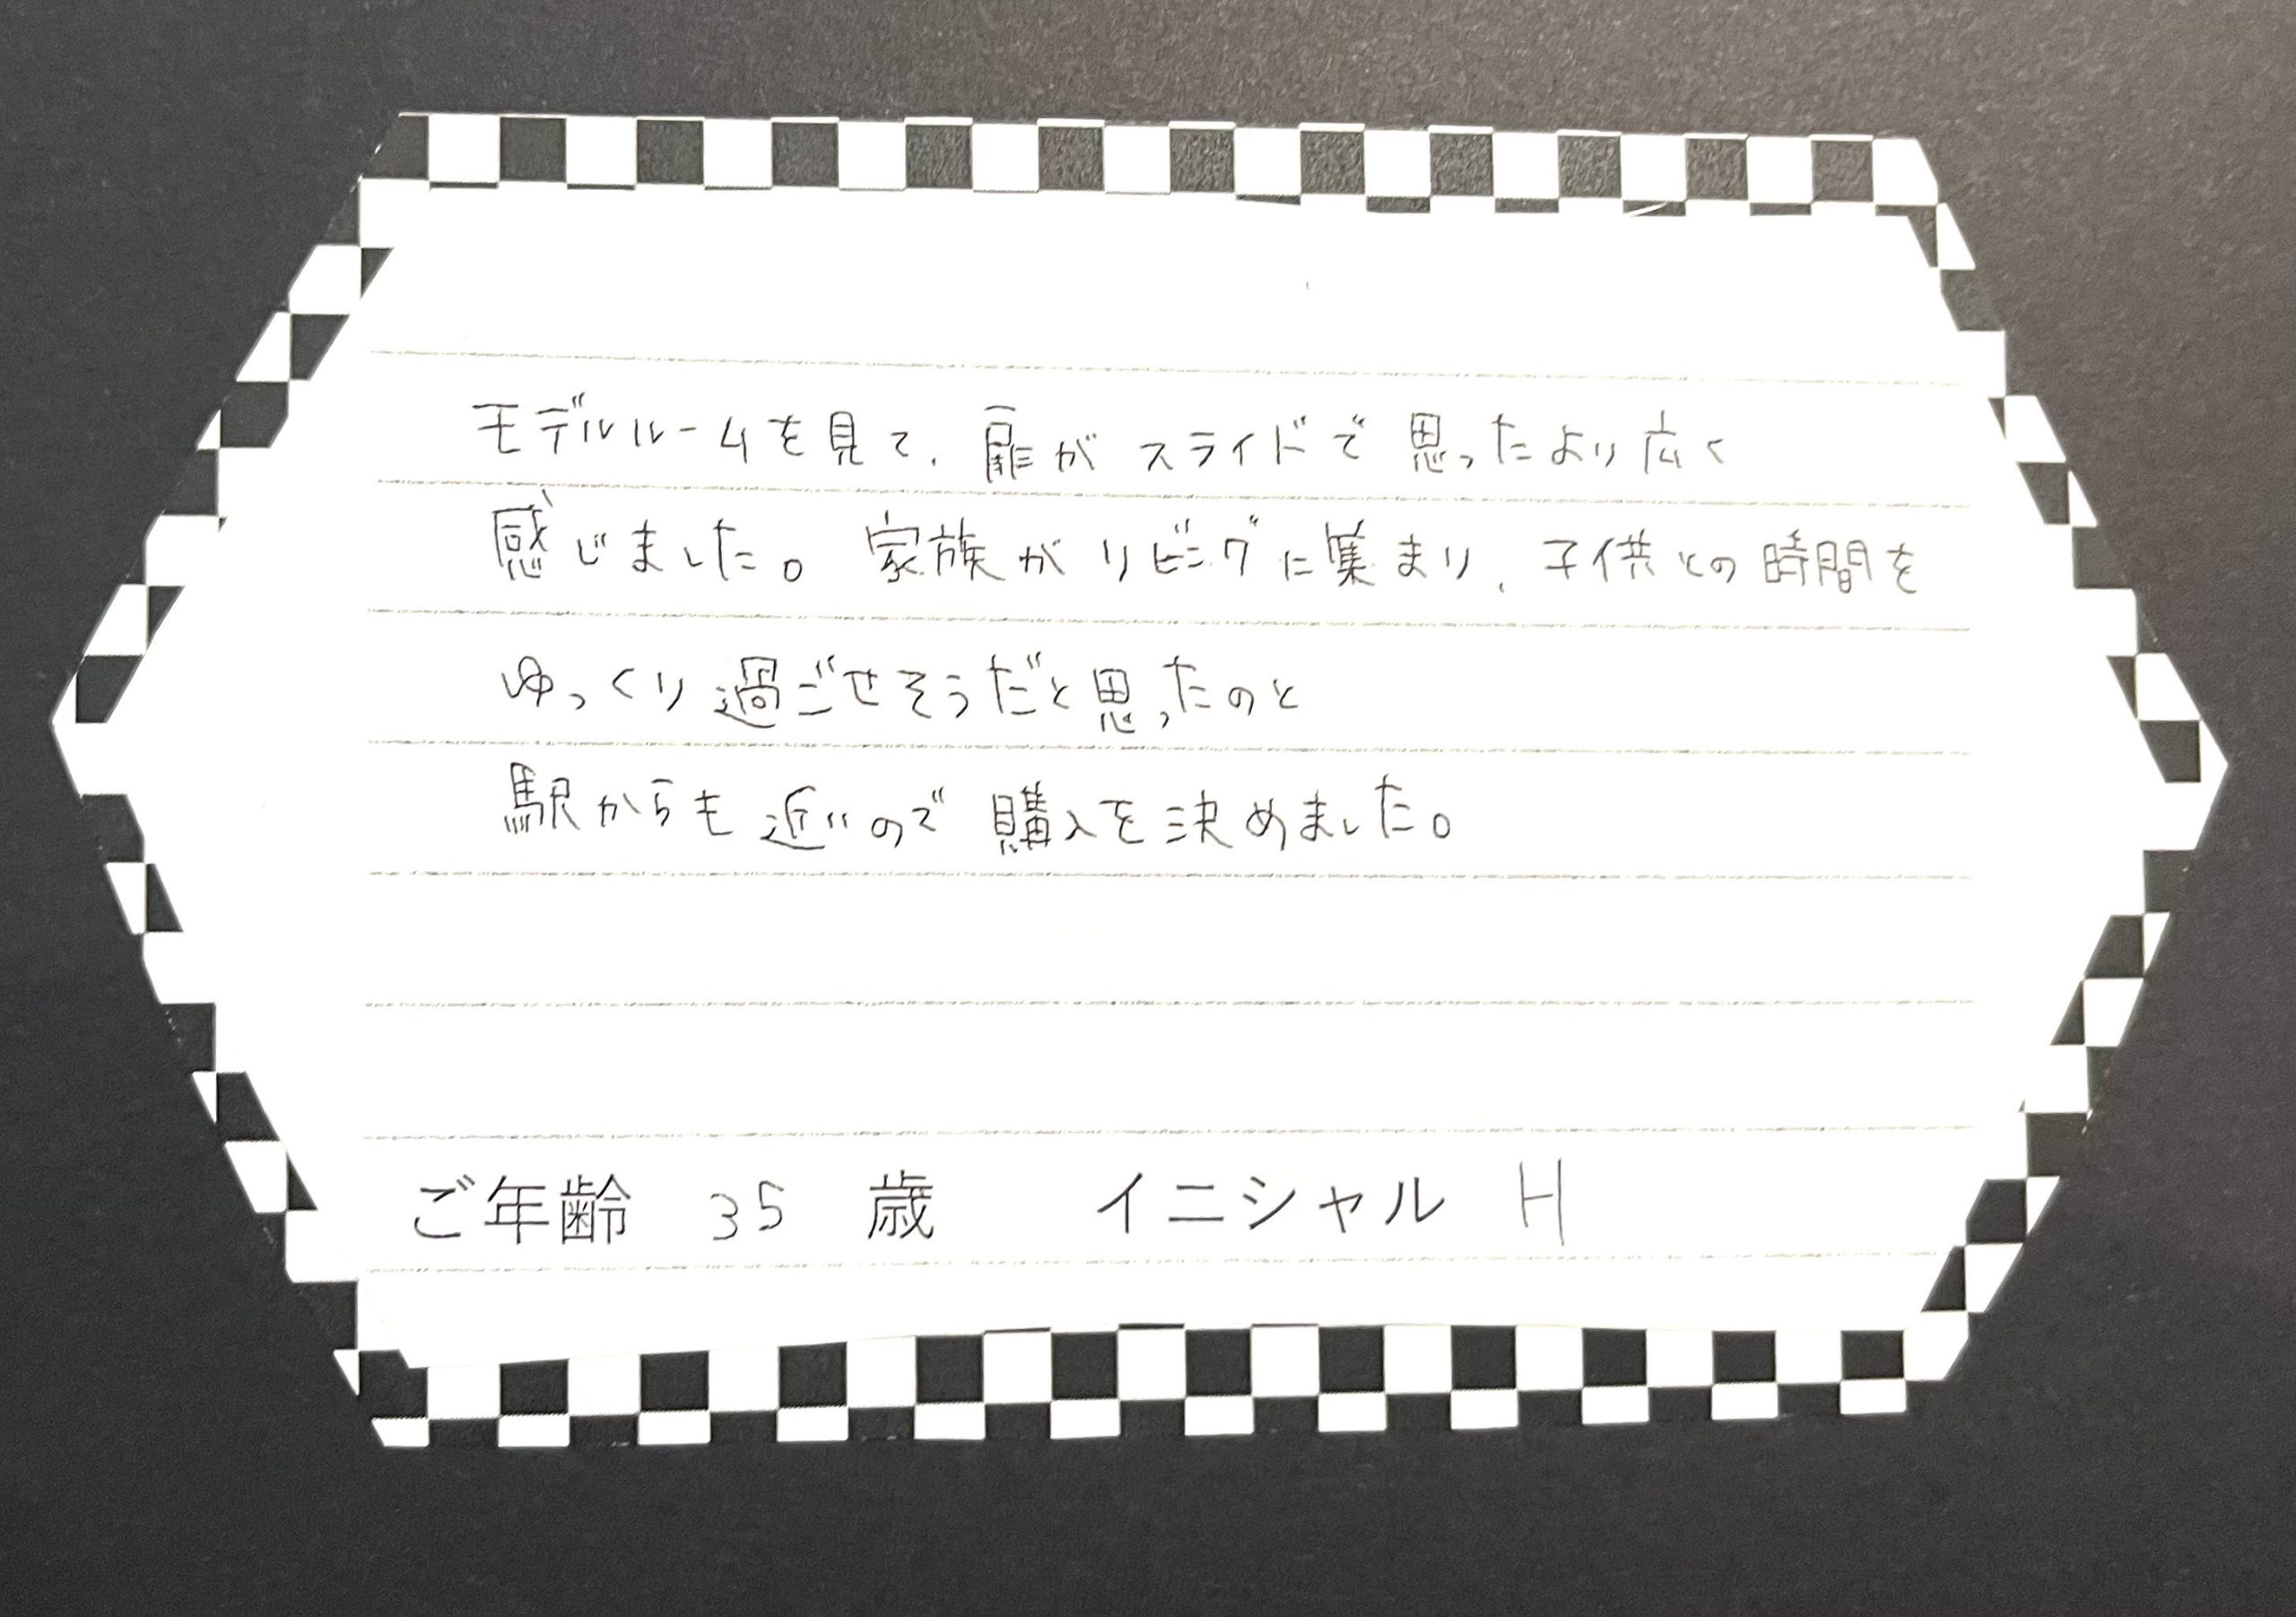 モデルルームを見て、扉がスライドで思ったより広く
感じました。家族がリビングに集まり、子供との時間を
ゆっくり過ごせそうだと思ったのと
駅からも近いので購入を決めました。
ご年齢 35 歳 イニシャル H